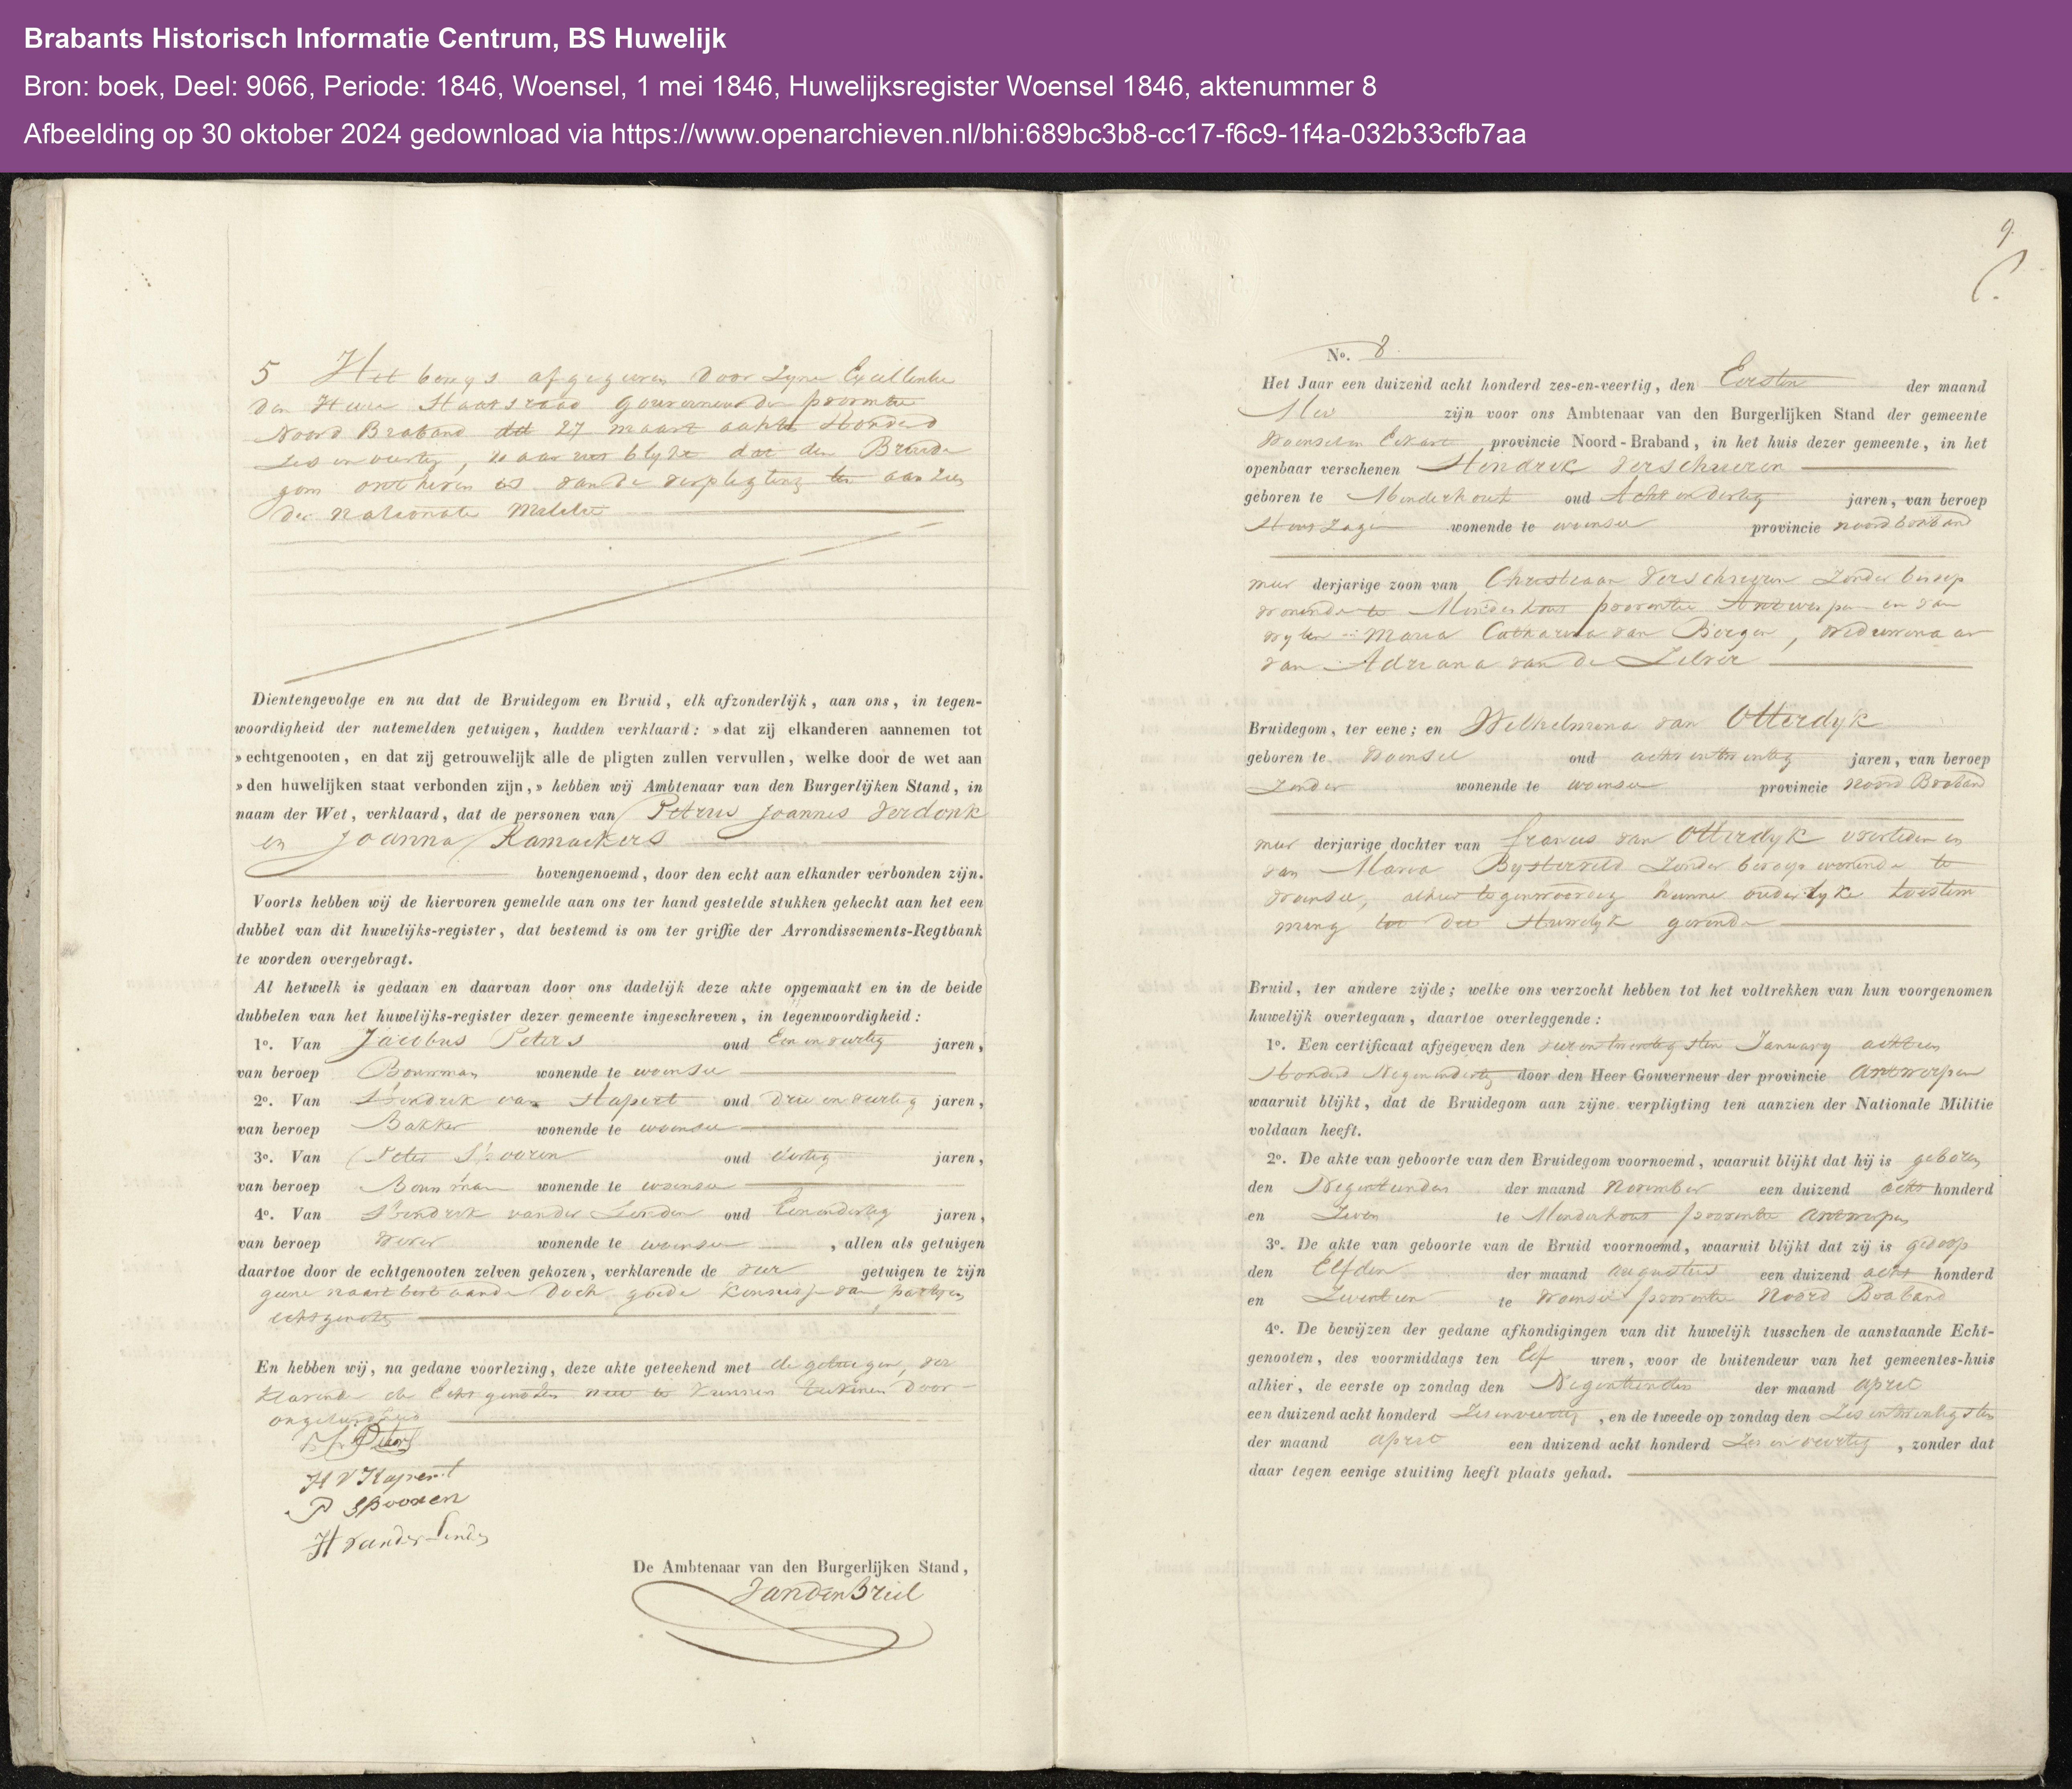 Brabants Historisch Informatie Centrum, BS Huwelijk
Bron: boek, Deel: 9066, Periode: 1846, Woensel, 1 mei 1846, Huwelijksregister Woensel 1846, aktenummer 8
Afbeelding op 30 oktober 2024 gedownload via https://www.openarchieven.nl/bhi:689bc3b8-cc17-f6c9-1f4a-032b33cfb7aa
5 Het bewys afgegeven door Zyne Excellentie
den Heer Staatsraad Gouverneur der provintie
Noord Braband dd 27 maart achtt Honderd
Zes en veertig, waar uit blykt dat den Bruide
gom ontheven is van de verpligting ten aanzien
der nationale Militie
Dientengevolge en na dat de Bruidegom en Bruid, elk afzonderlijk, aan ons, in tegen-
woordigheid der natemelden getuigen, hadden verklaard: »dat zij elkanderen aannemen tot
»echtgenooten, en dat zij getrouwelijk alle de pligten zullen vervullen, welke door de wet aan
»den huwelijken staat verbonden zijn,» hebben wij Ambtenaar van den Burgerlijken Stand, in
naam der Wet, verklaard, dat de personen van Petrus Joannes Verdonk
en Joanna Ramaekers
bovengenoemd, door den echt aan elkander verbonden zijn.
Voorts hebben wij de hiervoren gemelde aan ons ter hand gestelde stukken gehecht aan het een
dubbel van dit huwelijks-register, dat bestemd is om ter griffie der Arrondissements-Regtbank
te worden overgebragt.
Al hetwelk is gedaan en daarvan door ons dadelijk deze akte opgemaakt en in de beide
dubbelen van het huwelijks-register dezer gemeente ingeschreven, in tegenwoordigheid:
1o. Van Jacobus Peters oud Een en veertig jaren,
van beroep Bouwman wonende te woensel
2o. Van Hendrik van Stapert oud Drie en veertig jaren,
van beroep Bakker wonende te woensel
3o. Van Peter Spooren oud veertig jaren,
van beroep Bouwman wonende te woensel
4o. Van Hendrik vander Linden oud Eenendertig jaren,
van beroep Wever wonende te woensel, allen als getuigen
daartoe door de echtgenooten zelven gekozen, verklarende de vier getuigen te zijn
geene naastbestaande doch goede kennisse van partyen
echtgenoten
En hebben wij, na gedane voorlezing, deze akte geteekend met de getuigen, ver
klarende de Echtgenoten niet te kunnen teekenen door
ongeleerdheid
Peters
H V Stapert
P Spooren
H vander Linden
De Ambtenaar van den Burgerlijken Stand,
VandenBriel
9
No. 8.
Het Jaar een duizend acht honderd zes-en-veertig, den Eersten der maand
Mei zijn voor ons Ambtenaar van den Burgerlijken Stand der gemeente
Woensel en Eckart provincie Noord-Braband, in het huis dezer gemeente, in het
openbaar verschenen Hendrik Verschueren
geboren te Minderhout oud Acht en dertig jaren, van beroep
Hout Zager wonende te woensel provincie noord braband
meer derjarige zoon van Christiaan Verschueren Zonder beroep
wonende te Minderhout provintie Antwerpen en van
wylen Maria Catharina van Bergen, Weduwenaar
van Adriana van de
Bruidegom, ter eene; en Wilhelmina van Otterdyk
geboren te Woensel oud acht en twintig jaren, van beroep
Zonder wonende te woensel provincie Noord Braband
meer derjarige dochter van francis van Otterdyk overleden en
van Maria Bysterveld Zonder beroep wonende te
Woensel, alhier tegenwoordig hunne ouderlyke toestem
ming tot dit Huwelyk gevende
Bruid, ter andere zijde; welke ons verzocht hebben tot het voltrekken van hun voorgenomen
huwelijk overtegaan, daartoe overleggende:
1o. Een certificaat afgegeven den vierentwintigsten January achttien
Honderd Negenendertig door den Heer Gouverneur der provincie Antwerpen
waaruit blijkt, dat de Bruidegom aan zijne verpligting ten aanzien der Nationale Militie
voldaan heeft.
2o. De akte van geboorte van den Bruidegom voornoemd, waaruit blijkt dat hij is geboren
den Negentienden der maand November een duizend acht honderd
en Zeven te Minderhout provintie Antwerpen
3o. De akte van geboorte van de Bruid voornoemd, waaruit blijkt dat zij is gedoop
den Elfden der maand augustus een duizend acht honderd
en Zeventien te Woensel provintie Noord Braband
4o. De bewijzen der gedane afkondigingen van dit huwelijk tusschen de aanstaande Echt-
genooten, des voormiddags ten Elf uren, voor de buitendeur van het gemeentes-huis
alhier, de eerste op zondag den Negentienden der maand april
een duizend acht honderd Zes en veertig, en de tweede op zondag den Zes en twentigsten
der maand april een duizend acht honderd Zes en veertig, zonder dat
daar tegen eenige stuiting heeft plaats gehad.